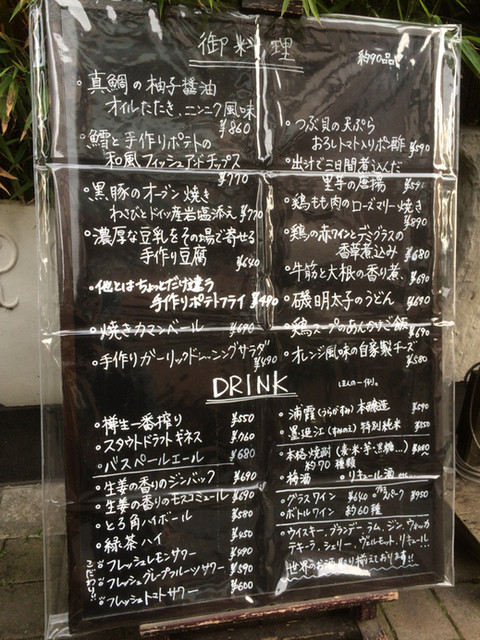 御料理
約90品!
・真鯛の柚子醤油
オイルたたき、ニンニク風味
¥860
・鱈と手作りポテトの
和風フィッシュアンドチップス
¥770
・黒豚のオーブン焼き
わさびとドイツ産岩塩添え ¥770
・濃厚な豆乳をその場で寄せる
手作り豆腐 ¥640
・他とはちょっとだけ違う
手作りポテトフライ ¥490
・焼きカマンベール ¥690
・手作りガーリックドレーシングサラダ ¥490
・つぶ貝の天ぷら
おろしトマト入りポン酢 ¥690
・出汁で三日間煮込んだ
里芋の唐揚 ¥590
・鶏もも肉のローズマリー焼き
¥890
・鶏の赤ワインとデミグラスの
香草煮込み ¥680
・牛筋と大根の香り煮 ¥690
・磯明太子のうどん ¥690
・鶏スープのあんかけご飯 ¥690
・オレンジ風味の自家製チーズ
¥580
DRINK
ほんの一例。
・樽生一番搾り ¥550
・スタウトドラフトギネス ¥760
・バスペールエール ¥680
・生姜の香りのジンバック ¥690
・生姜の香りのモスコミュール ¥690
・とろ角ハイボール ¥580
・緑茶ハイ ¥450
こだわり!!
フレッシュレモンサワー ¥490
フレッシュグレープフルーツサワー ¥590
フレッシュトマトサワー ¥600
・浦霞(うらがすみ)本醸造 ¥590
・墨廼江(すみのえ)特別純米 ¥850
・本格焼酎(麦・米・芋・黒糖…)
約70種類
・梅酒 ・リキュール酒 etc…
・グラスワイン ¥640 ¥950
・ボトルワイン 約60種
・ウイスキー、ブランデー、ラム、ジン、ウォッカ
テキーラ、シェリー、ヴェルモット、リキュール…
世界のお酒取り揃えております!!